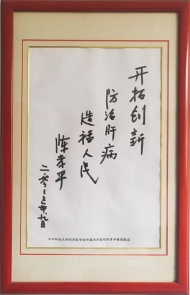 开拓创新
防治肝病
造福人民
陈孝平
二零一三年九月